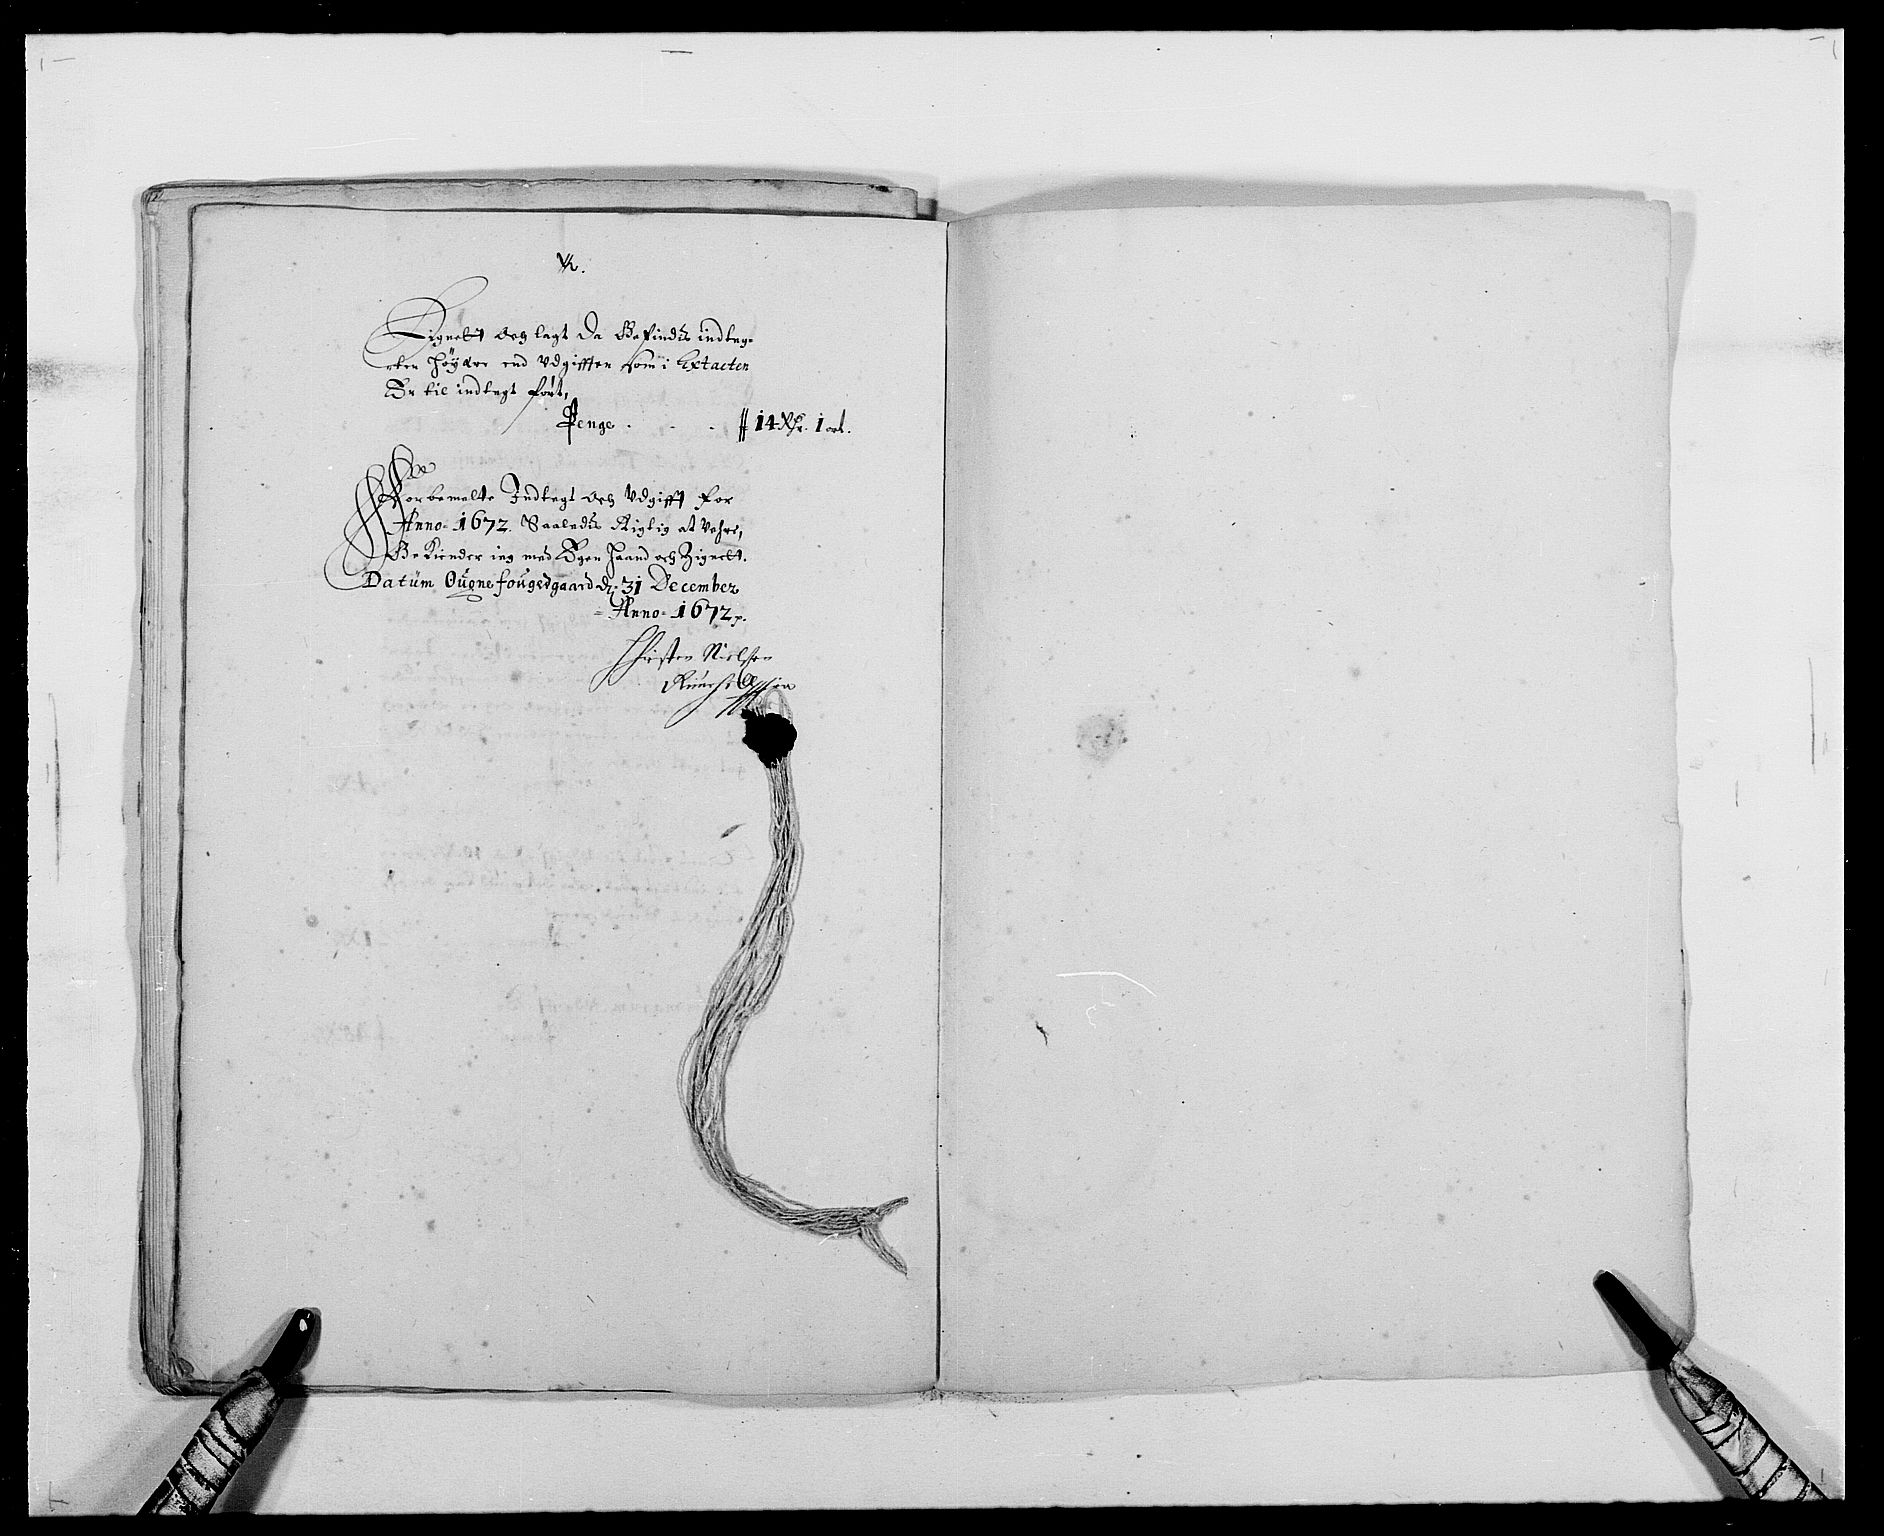 Lignelt och lagt Da Befindis indteg-
ten höyere end Udgifften som i Extacten
Er til indtegt fört,
Penge . . . # 14 Rdr. 1 ort.
Forbemelte Indtegt och Udgifft for
Anno 1672. Saaledis Rigtig at vehre,
Bekiender ieg med Egen Haand och Zignett.
Datüm Oügne fougedgaard d. 31 December
Anno 1672
Nielsen